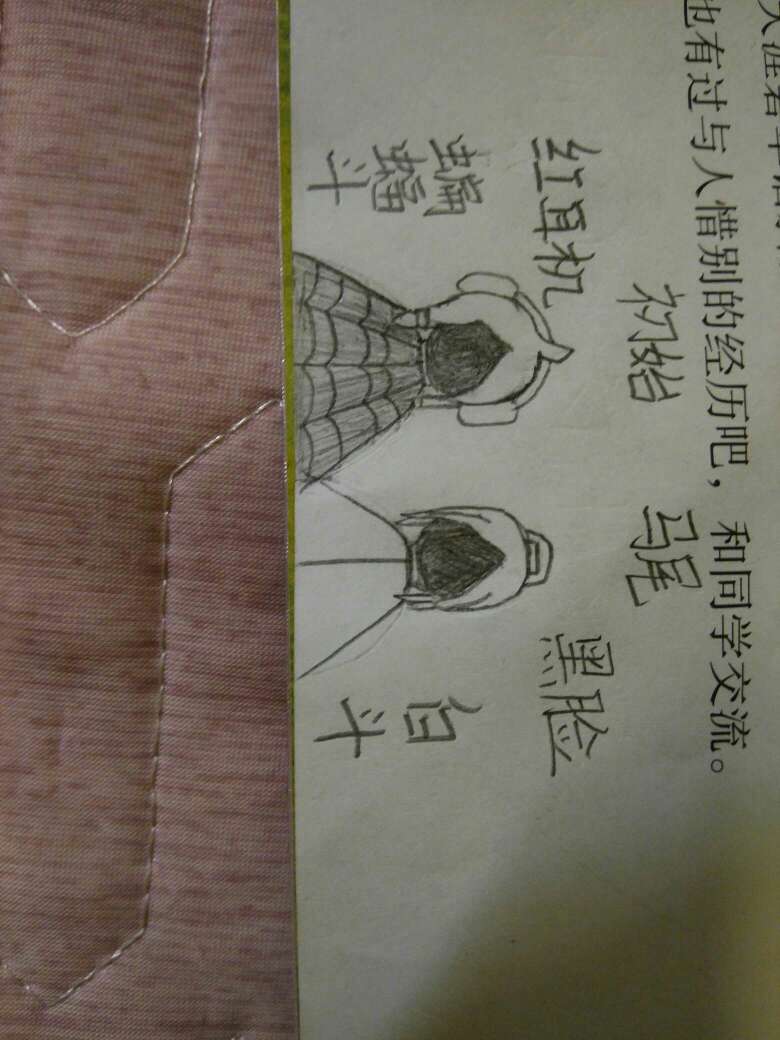 也有过与人惜别的经历吧，和同学交流。
初始
红耳机
蝙蝠斗
马尾
黑脸
白斗